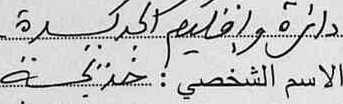 دائرة وإقليم الجديدة
الاسم الشخصي : خديجة